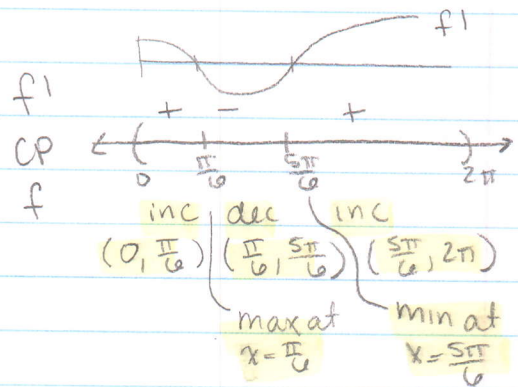 f'
f' + - +
CP
0 π/6 5π/6 2π
f
inc dec inc
(0, π/6) (π/6, 5π/6) (5π/6, 2π)
max at min at
x = π/6 x = 5π/6